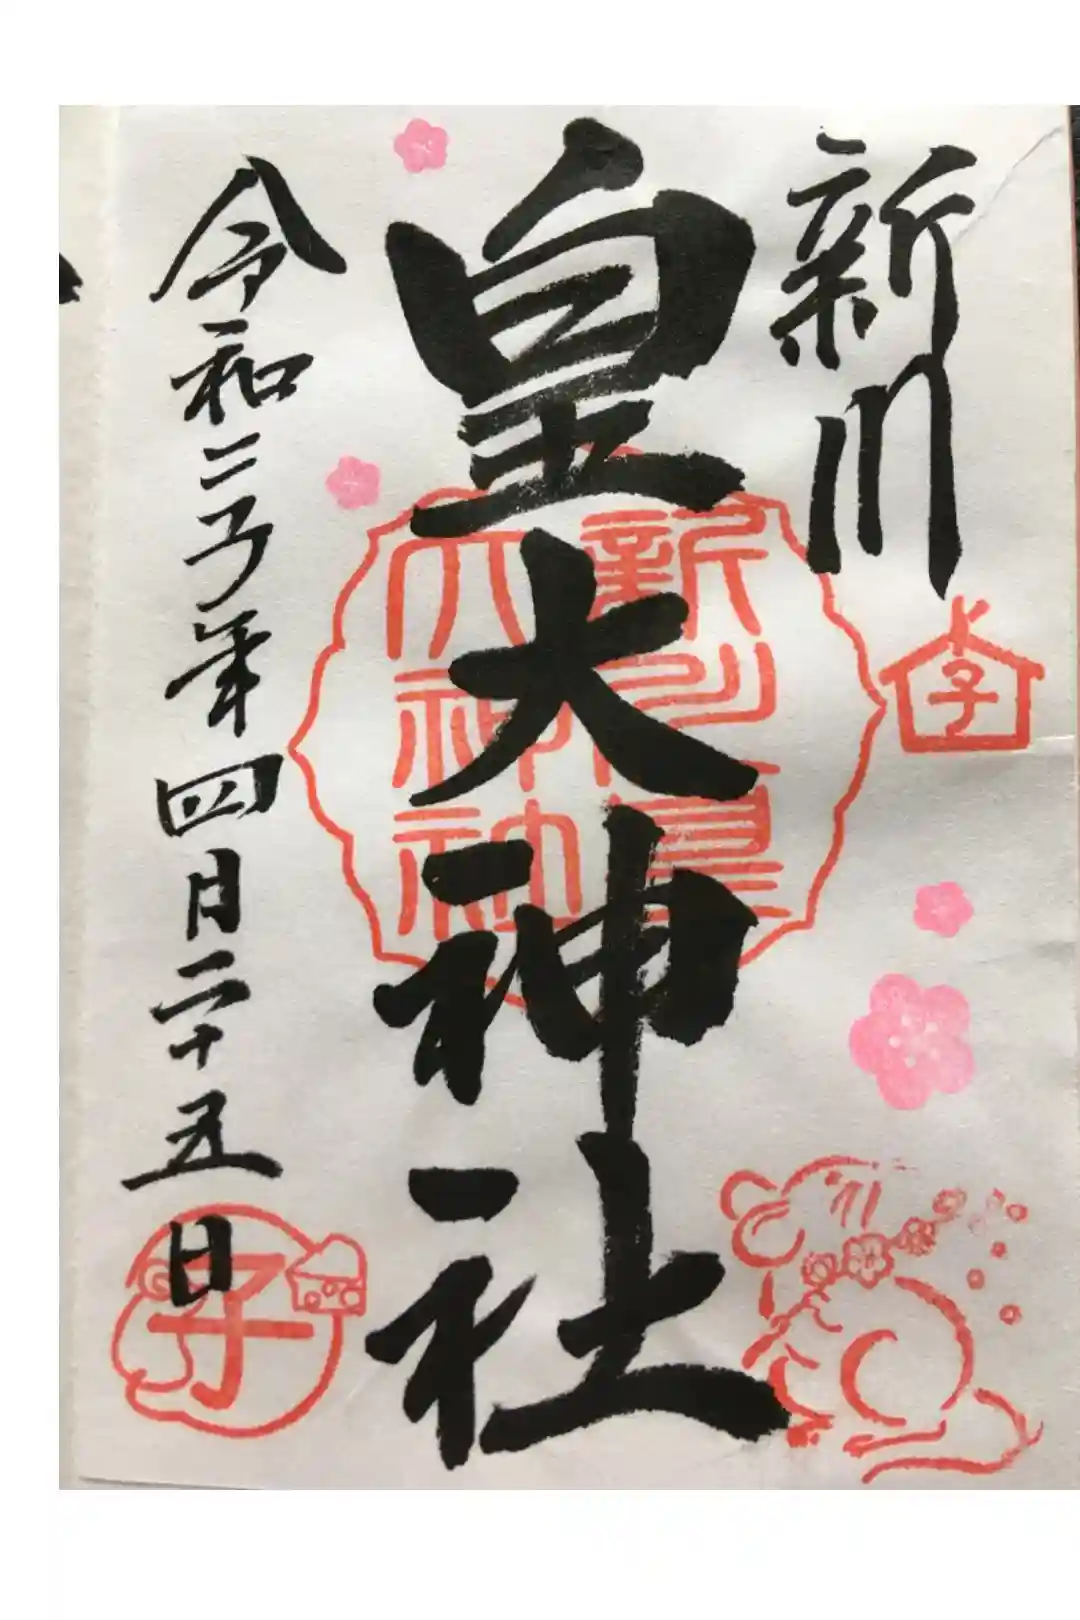 新川
皇大神社
新川皇
大神社
令和二子年四月二十五日
子